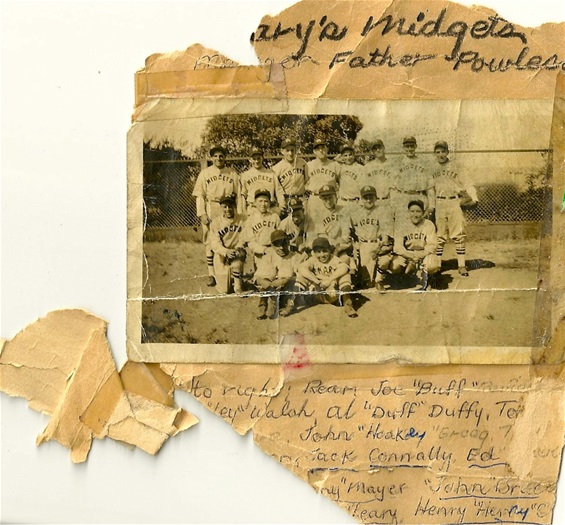 ary's Midgets
Manager Father Powless
MIDGETS MIDGETS MIDGETS
MIDGETS
to right: Rear Joe "Buff"
ley" Walsh al "Duff" Duffy, To
John "Hookey" Gregg, T
Jack Connally, Ed
ny" Mayer "John" Bree
Leary Henry "Henry"